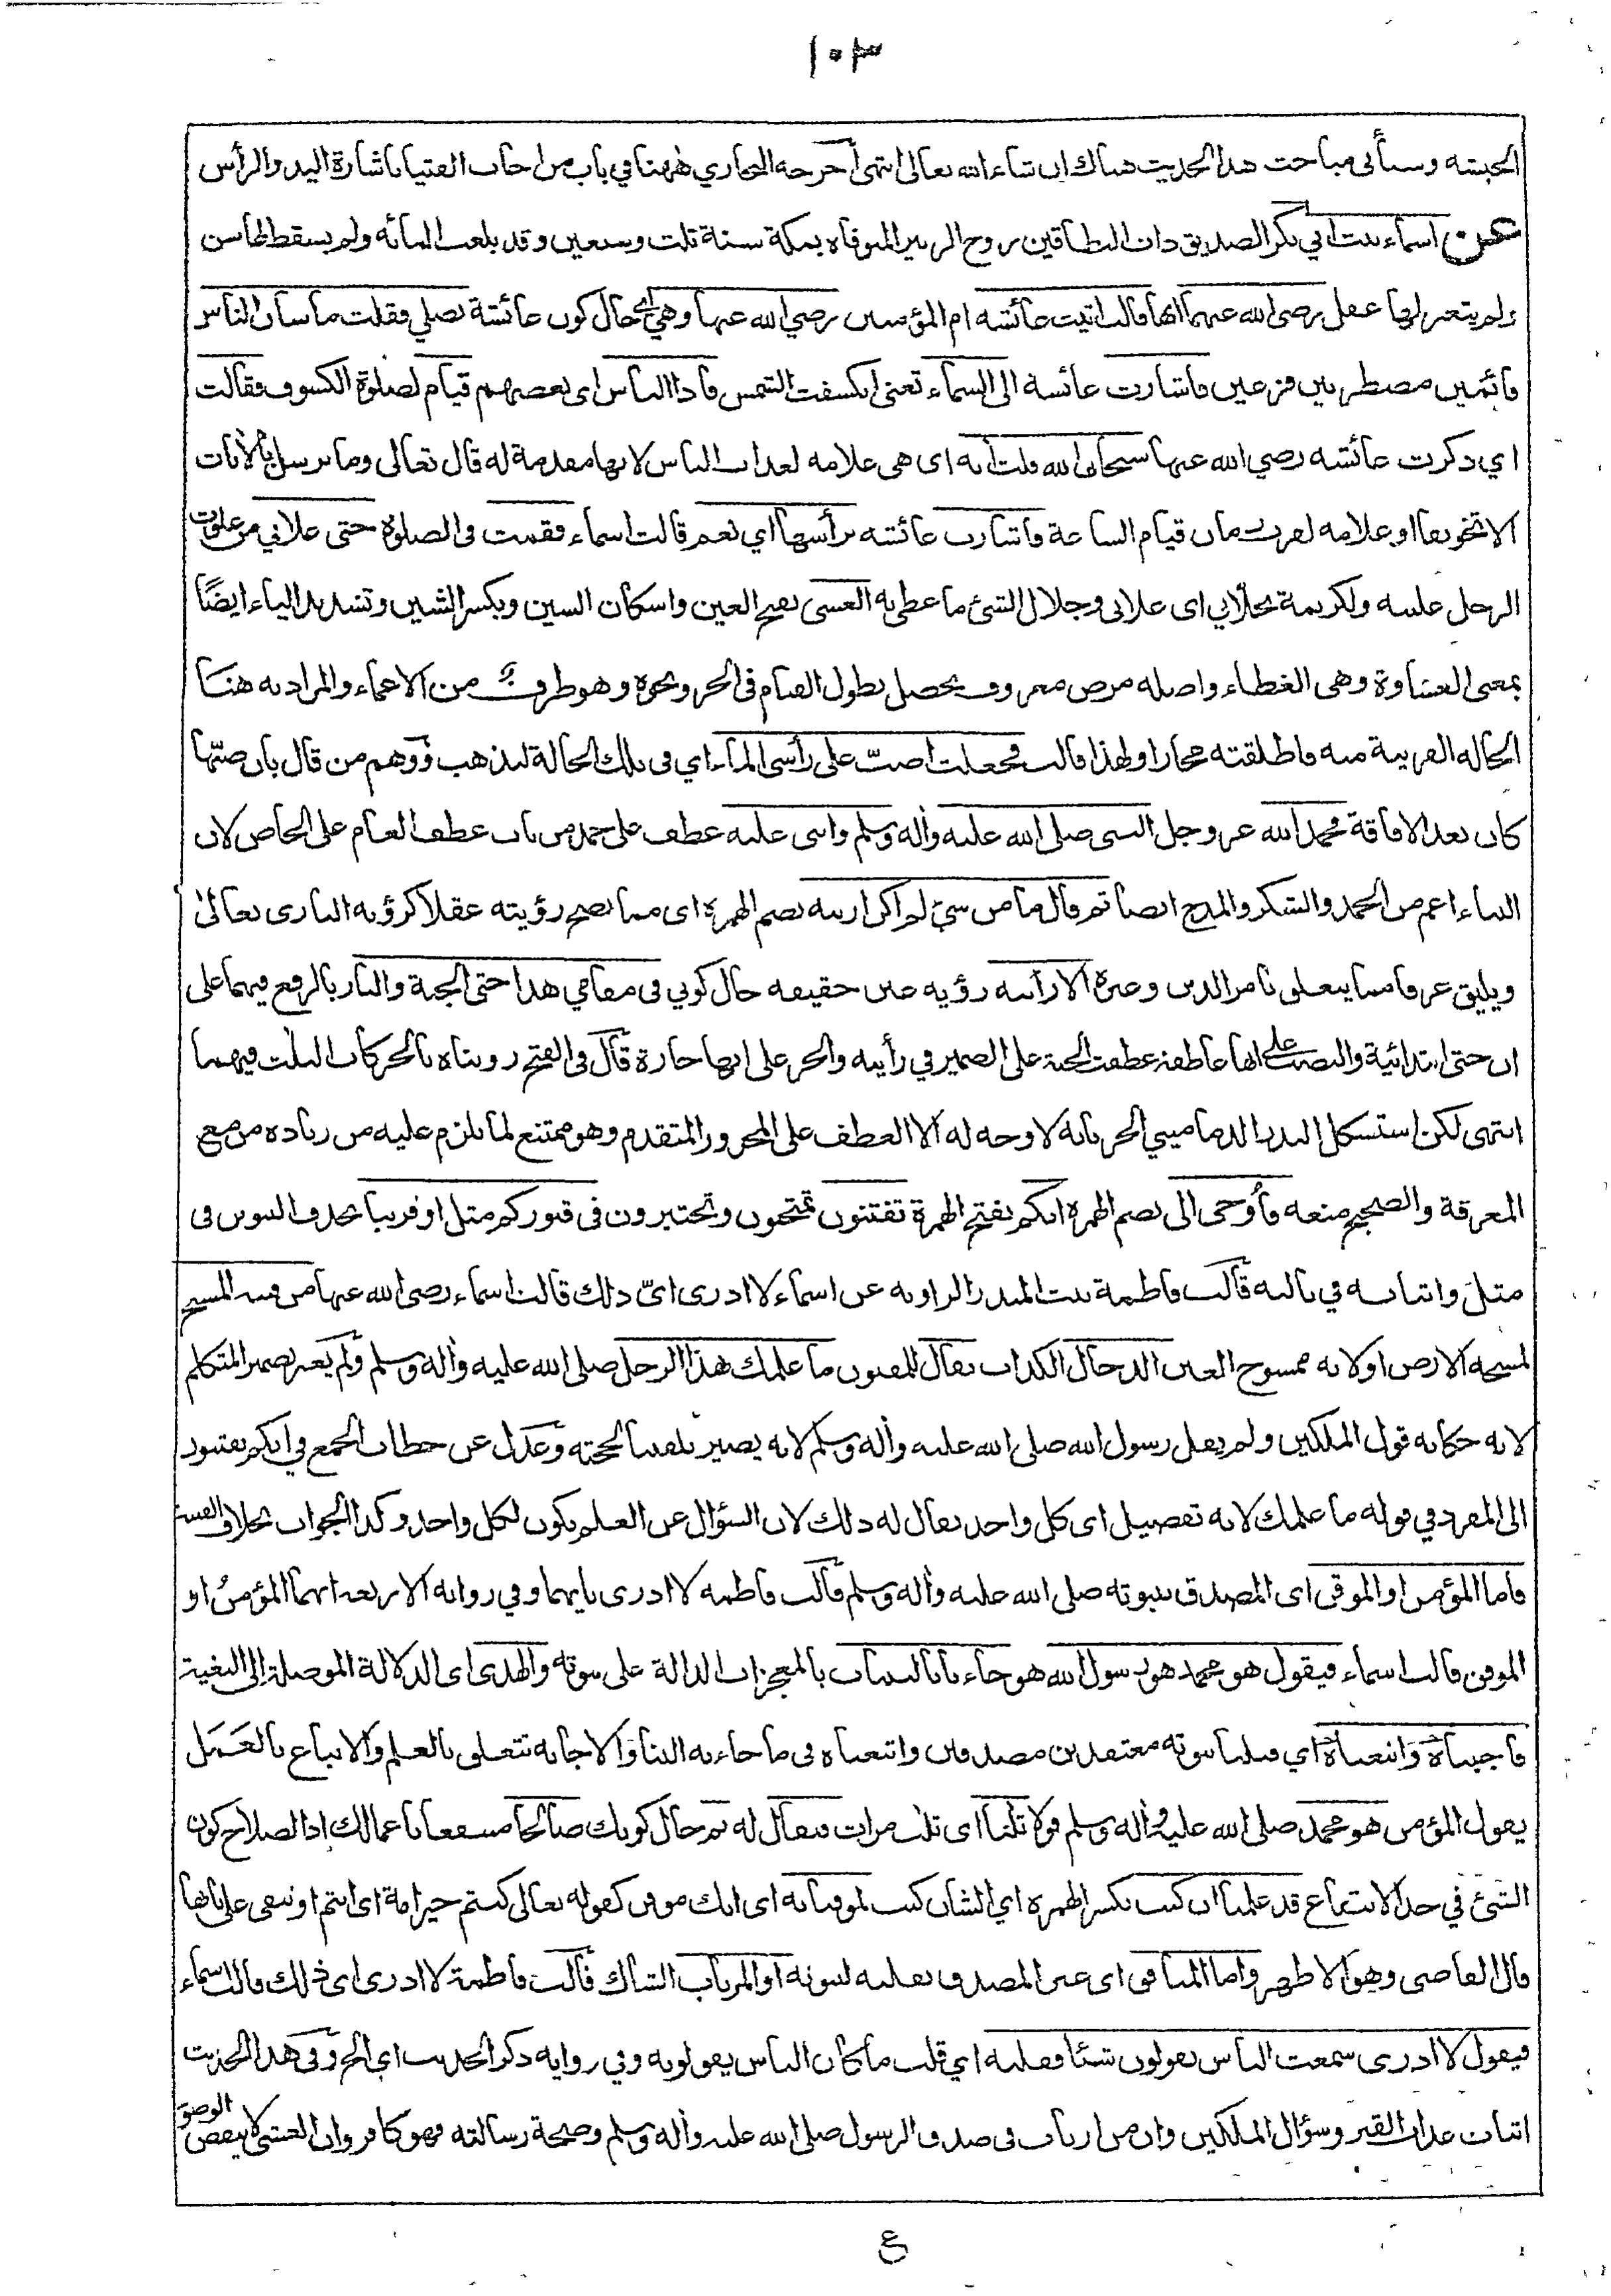 ١٠٣
الحبشه وسيأتى مباحث هذا الحديث هناك ان شاء الله تعالى انتهى أخرجه البخاري ههنا في باب من اجاب الفتيا باشارة اليد والرأس
عن اسماء بنت ابي بكر الصديق ذات النطاقين زوج الزبير المتوفاه بمكة سنة ثلث وسبعين وقد بلغت المائه ولم يسقط لها سن
ولم يتغير لها عقل رضى الله عنهما انها قالت اتيت عائشه ام المؤمنين رضي الله عنها وهي اى حال كون عائشة تصلي فقلت ما شان الناس
قائمين مضطربين فزعين فاشارت عائشة الى السماء تعنى انكسفت الشمس فاذا الناس اى بعضهم قيام لصلوة الكسوف فقالت
اي ذكرت عائشه رضي الله عنها سبحان الله قلت أيه اى هى علامه لعذاب الناس لانها مقدمة له قال تعالى وما نرسل بالأيات
الا تخويفا او علامه لقرب زمان قيام الساعة فاشارت عائشه برأسها اي نعم قالت اسماء فقمت فى الصلوة حتى علانى من علوت
الرجل غلبته ولكريمة تجلّانى اى علانى وجلال الشئ ما غطى به الغشى بفتح الغين واسكان الشين وبكسر الشين وتشديد الياء ايضًا
بمعنى الغشاوة وهى الغطاء واصله مرض معروف يحصل بطول القيام فى الحر ونحوه وهو طرف من الاغماء والمراد به هنا
الحاله القريبة منه فاطلقته مجازا ولهذا قالت فجعلت اصبّ على رأسى الماء اي فى تلك الحالة ليذهب ووهم من قال بان صبّها
كان بعد الافاقة فحمد الله عز وجل النبى صلى الله عليه وأله وسلم واثنى عليه عطف على حمد من باب عطف العام على الخاص لان
الثناء اعم من الحمد والشكر والمدح ايضا ثم قال ما من شئ لم اكن اريته بضم الهمزة اى مما يصح رؤيته عقلا كرؤية البارى تعالى
ويليق عرفا مما يتعلق بامر الدين وغيره الا رأيته رؤيه عين حقيقه حال كونى فى مقامي هذا حتى الجنة والنار بالرفع فيهما على
ان حتى ابتدائية والنصب على انها عاطفة عطفت الجنة على الضمير في رأيته والجر على انها جارة قال فى الفتح رويناه بالحركات الثلث فيهما
انتهى لكن استشكل البدر الدماميني الجر بانه لا وجه له الا العطف على المجرور المتقدم وهو ممتنع لما يلزم عليه من زياده من مع
المعرفة والصحيح منعه فأوحى الى بضم الهمزة انكم بفتح الهمزة تفتنون تمتحنون وتختبرون فى قبوركم مثل او قريبا بحذف التنوين فى
مثلَ واثباته في تاليه قالت فاطمة بنت المنذر الراويه عن اسماء لا ادرى اىّ ذلك قالت اسماء رضى الله عنها من فتنه المسيح
لمسحه الارض او لانه ممسوح العين الدجال الكذاب يقال للمفتون ما علمك بهذا الرجل صلى الله عليه وأله وسلم ولم يعبر بضمير المتكلم
لانه حكايه قول الملكين ولم يقل رسول الله صلى الله عليه وأله وسلم لانه يصير تلقينا لحجته وعدل عن خطاب الجمع في انكم تفتنون
الى المفرد في قوله ما علمك لانه تفصيل اى كل واحد يقال له ذلك لان السؤال عن العلم يكون لكل واحد وكذا الجواب بخلاف الفتنة
فاما المؤمن او الموقن اى المصدق بنبوته صلى الله عليه وأله وسلم قالت فاطمه لا ادرى بايهما وفي روايه الاربعه ايهما المؤمنُ او
الموقن قالت اسماء فيقول هو محمد هو رسول الله هو جاءنا بالبينات بالمعجزات الدالة على نبوته والهدى اى الدلالة الموصلة الى البغية
فاجبناه واتبعناه اي قبلنا نبوته معتقدين مصدقين واتبعناه فى ما جاء به الينا والاجابه تتعلق بالعلم والاتباع بالعَمَل
يقول المؤمن هو محمد صلى الله عليه وأله وسلم قولا ثلثا اى ثلث مرات فيقال له نم حال كونك صالحا منتفعا باعمالك اذ الصلاح كون
الشئ في حد الانتفاع قد علمنا ان كنت بكسر الهمزه اي الشان كنت لموقنا به اى انك موقن كقوله تعالى كنتم خير امة اى انتم او تبقى على بابها
قال القاضى وهو الاظهر واما المنافق اى غير المصدق بقلبه لنبوته او المرتاب الشاك قالت فاطمة لا ادرى اى ذلك قالت اسماء
فيقول لا ادرى سمعت الناس يقولون شيئا فقلته اي قلت ما كان الناس يقولونه وفي روايه ذكر الحديث اى الخ وفى هذا الحديث
اثبات عذاب القبر وسؤال الملكين وان من ارتاب فى صدق الرسول صلى الله عليه وأله وسلم وصحة رسالته فهو كافر وان الغشى لا ينقض الوضو
ع